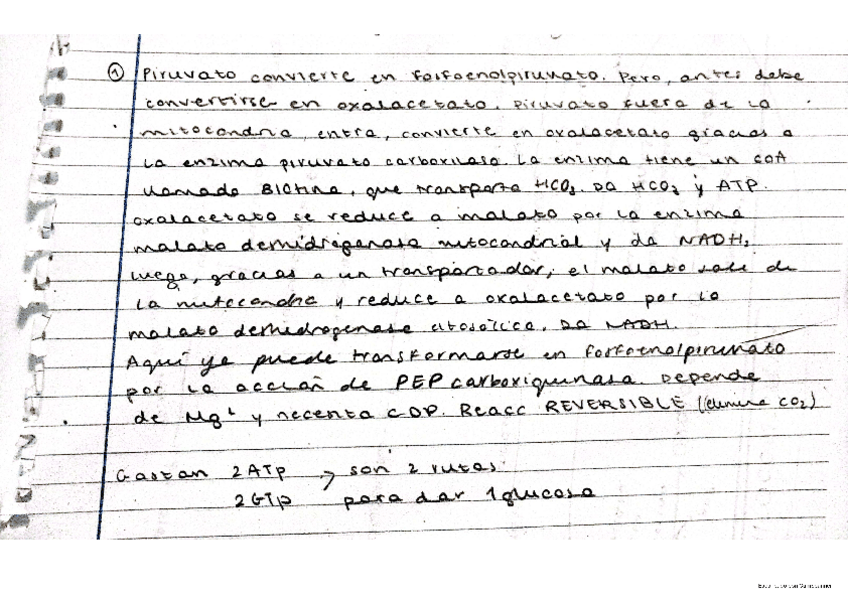 ① Piruvato convierte en fosfoenolpiruvato. Pero, antes debe
convertirse en oxalacetato. Piruvato fuera de la
mitocondria, entra, convierte en oxalacetato gracias a
la enzima piruvato carboxilasa. La enzima tiene un COA
llamado BIOtina, que transporta HCO₃. DA HCO₃ y ATP.
oxalacetato se reduce a malato por la enzima
malato demhidrogenasa mitocondrial y da NADH₂
luego, gracias a un transportador, el malato sale de
la mitocondria y reduce a oxalacetato por la
malato demhidrogenasa citosólica. DA NADH.
Aquí ya puede transformarse en fosfoenolpiruvato
por la acción de PEP carboxiquinasa. Depende
de Mg² y necesita GDP. Reacc REVERSIBLE (elimina CO₂)
Gastan 2ATP → son 2 rutas
2GTP para dar 1 glucosa